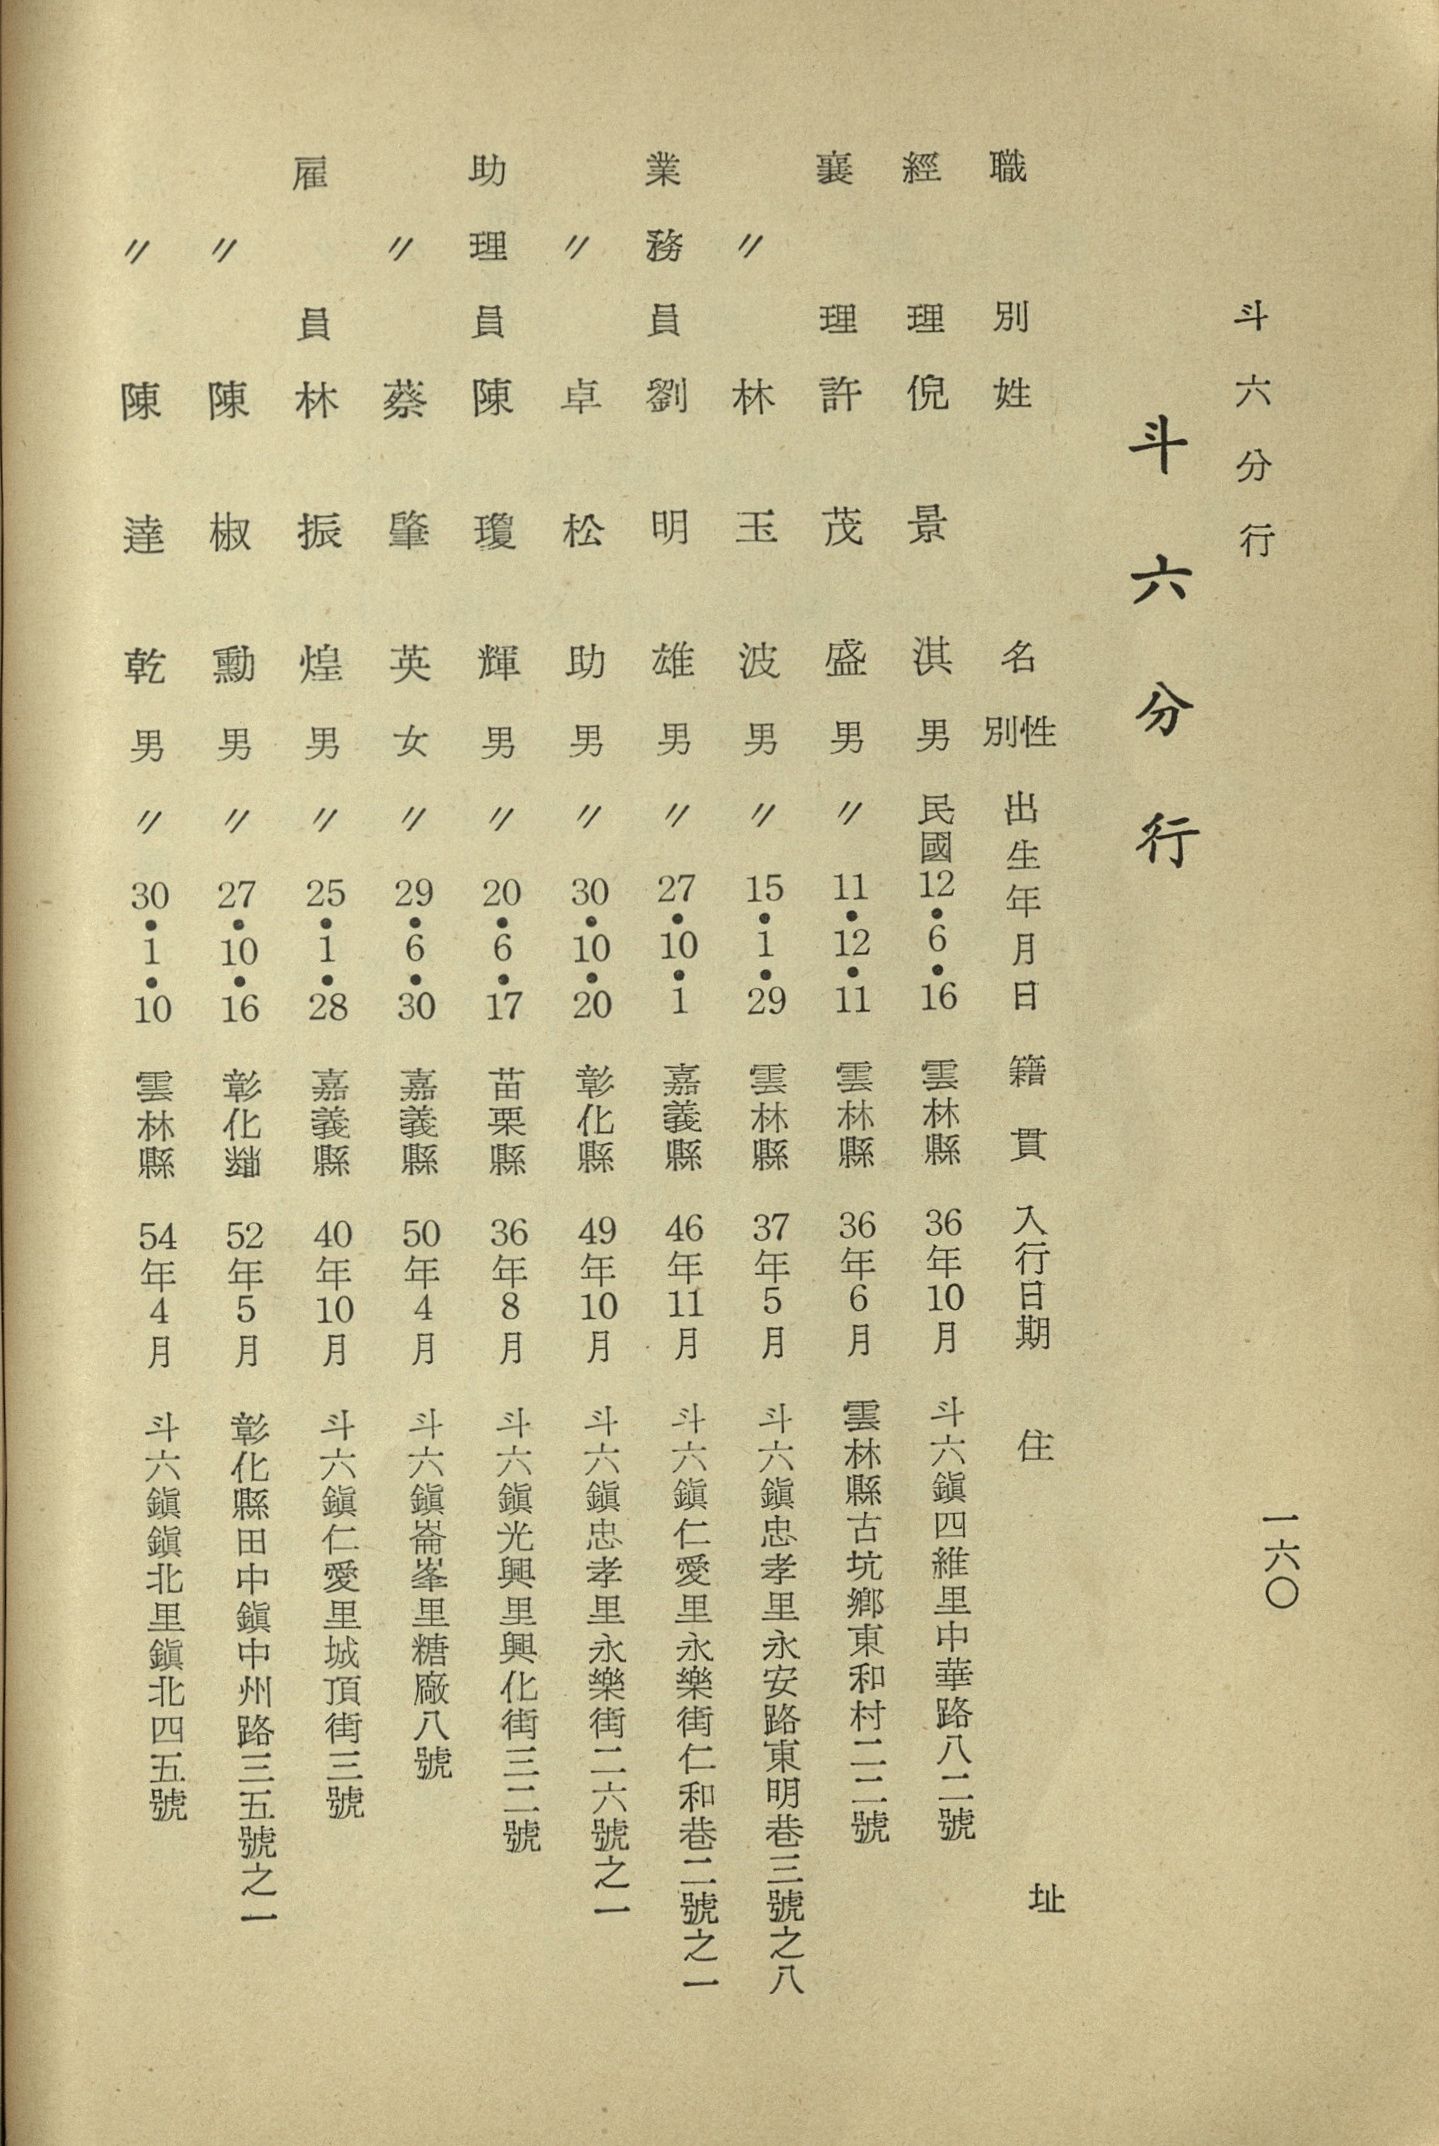 斗六分行
一六〇
斗六分行
職別 姓名 性別 出生年月日 籍貫 入行日期 住址
經理 倪景淇 男 民國12•6•16 雲林縣 36年10月 斗六鎭四維里中華路八二號
襄理 許茂盛 男 〃11•12•11 雲林縣 36年6月 雲林縣古坑鄉東和村二二號
〃 林玉波 男 〃15•1•29 雲林縣 37年5月 斗六鎭忠孝里永安路東明巷三號之八
業務員 劉明雄 男 〃27•10•1 嘉義縣 46年11月 斗六鎭仁愛里永樂街仁和巷二號之一
〃 卓松助 男 〃30•10•20 彰化縣 49年10月 斗六鎭忠孝里永樂街二六號之一
助理員 陳瓊輝 男 〃20•6•17 苗栗縣 36年8月 斗六鎭光興里興化街三二號
〃 蔡肇英 女 〃29•6•30 嘉義縣 50年4月 斗六鎭崙峯里糖廠八號
雇員 林振煌 男 〃25•1•28 嘉義縣 40年10月 斗六鎭仁愛里城頂街三號
〃 陳椒勳 男 〃27•10•16 彰化縣 52年5月 彰化縣田中鎭中州路三五號之一
〃 陳達乾 男 〃30•1•10 雲林縣 54年4月 斗六鎭鎭北里鎭北四五號